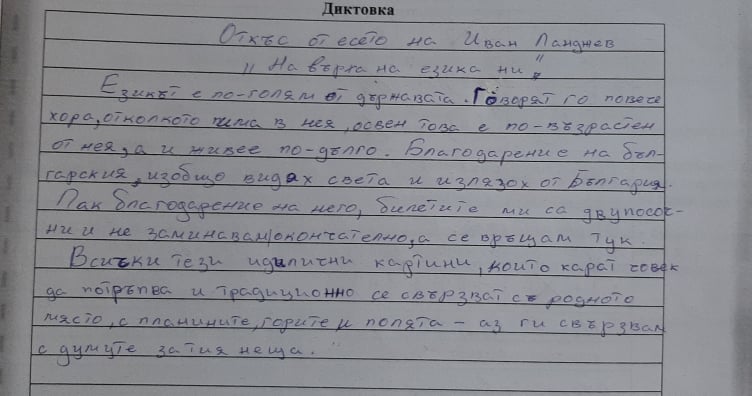 Диктовка
Откъс от есето на Иван Ланджев
„На върха на езика ни“
Езикът е по-голям от държавата. Говорят го повече
хора, отколкото има в нея, освен това е по-възрастен
от нея, а и живее по-дълго. Благодарение на бъл-
гарския, изобщо видях света и излязох от България.
Пак благодарение на него, билетите ми са двупосоч-
ни и не заминавам окончателно, а се връщам тук.
Всички тези идилични картини, които карат човек
да потръпва и традиционно се свързват с родното
място, с планините, горите и полята – аз ги свързвам
с думите за тия неща.